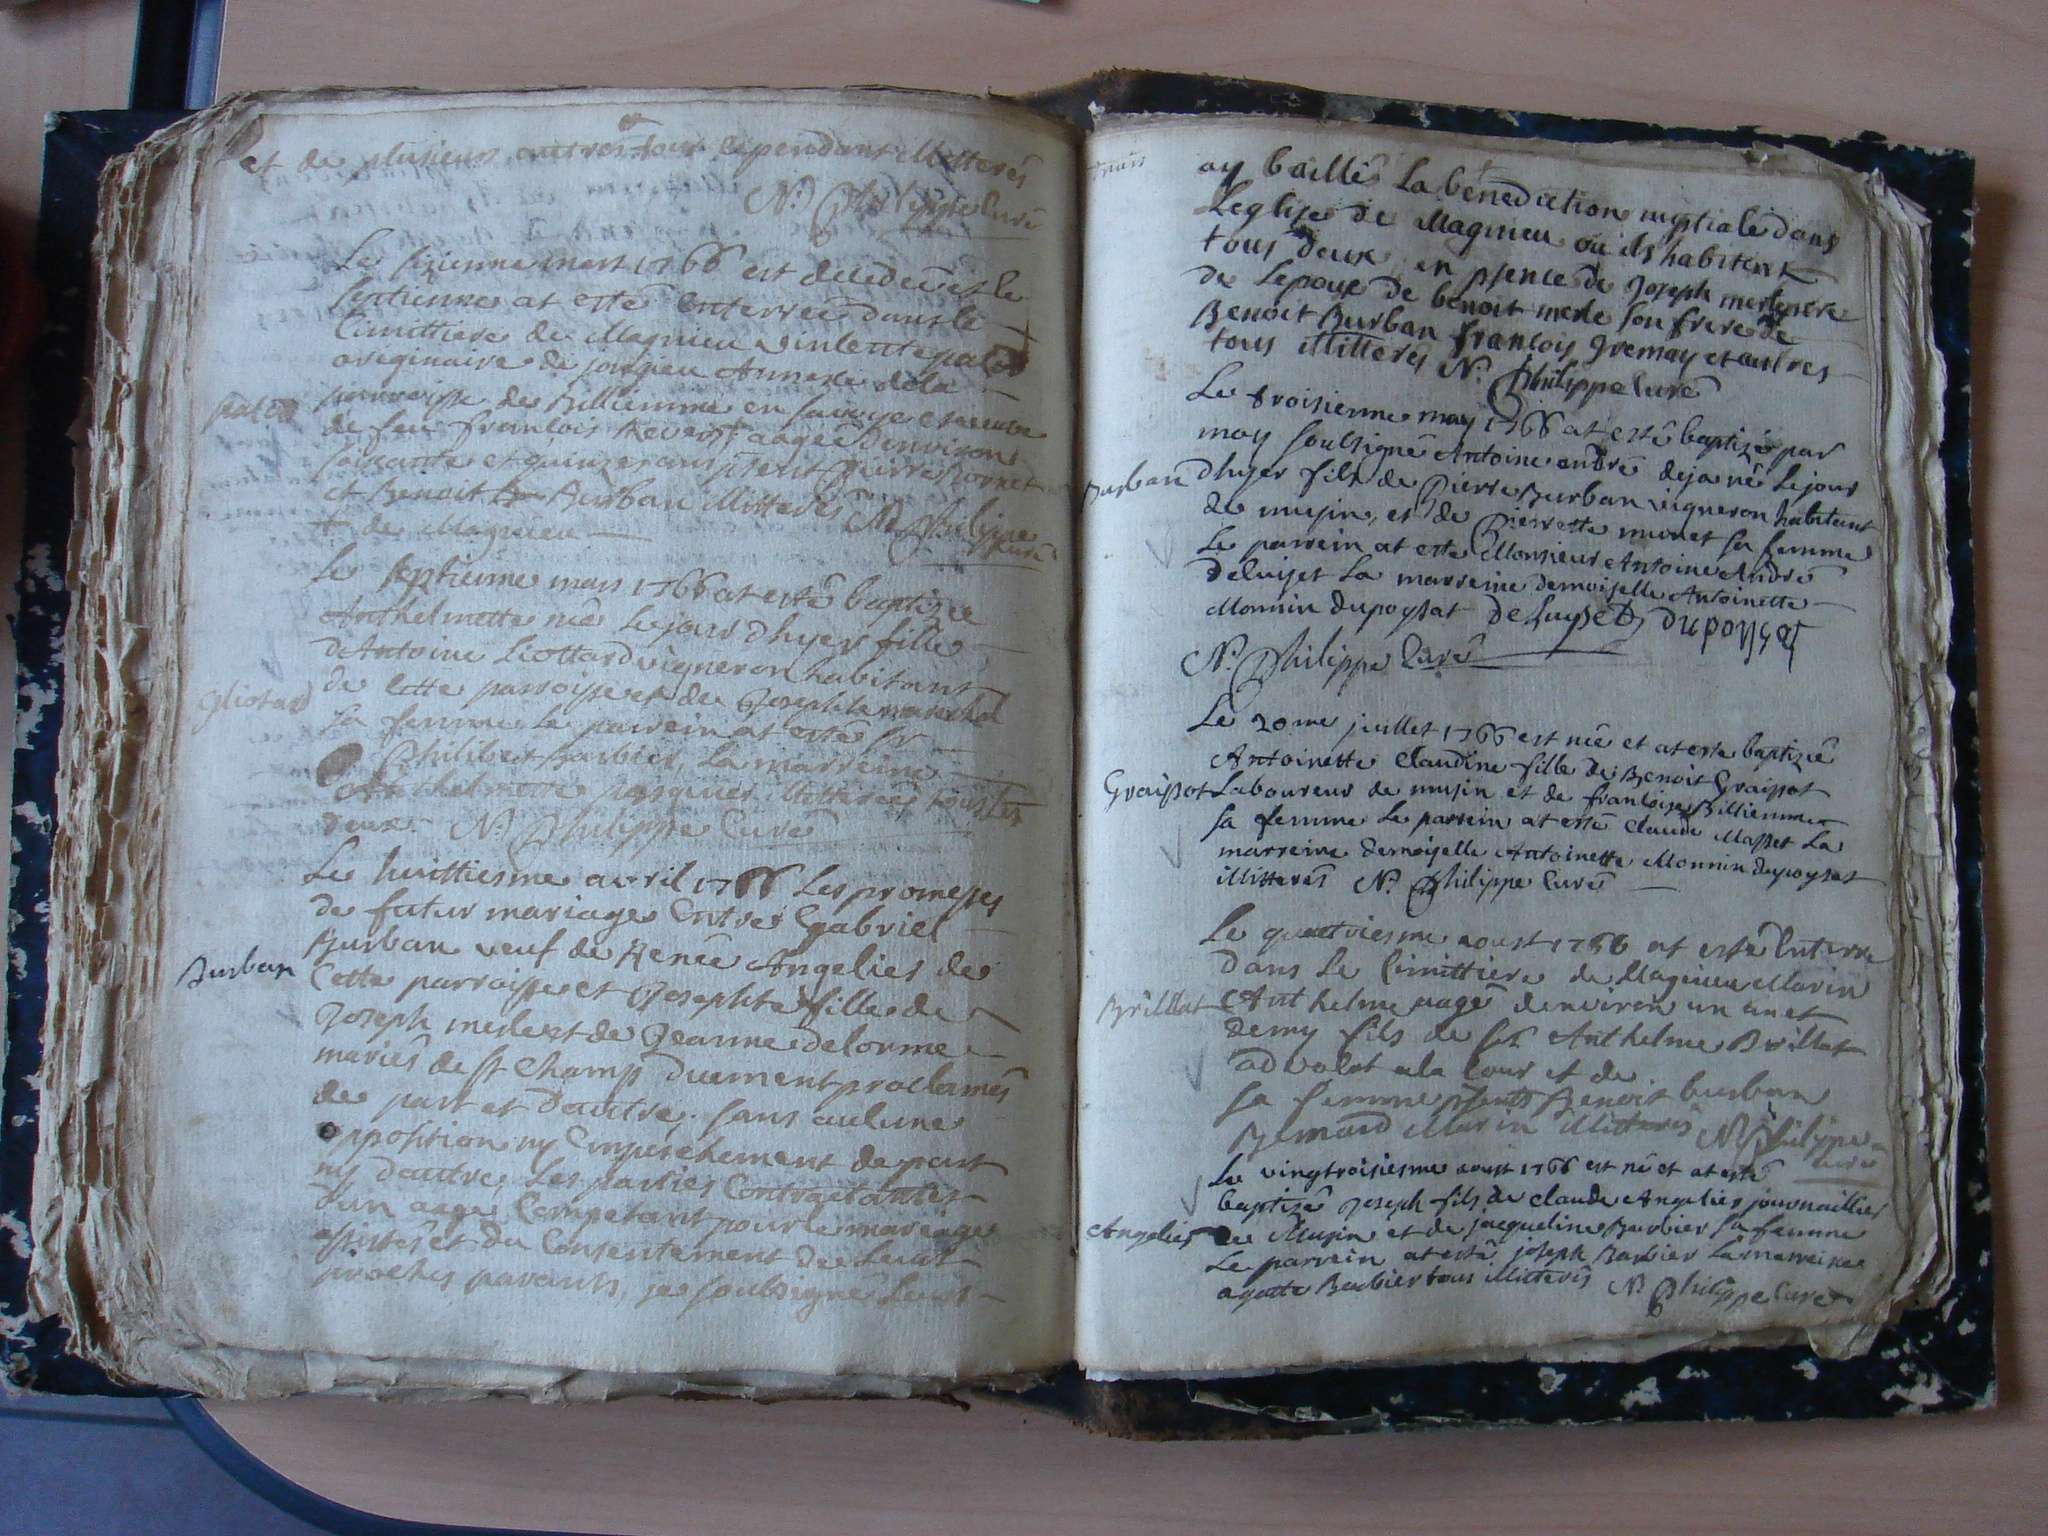 et de plusieurs autres tous cependant illitterés
N. Philippe Curé
Le sizieme mars 1766 est decedeé et le
septieme at esté enterreé dans le
Cimittiere de Magnieu
originaire de jongieu Annexe de la
parroisse de Billiemme en savoye et veuve
de feu francois Revest + aagée d'environ
soixante et quinze ans psent Pierre Cornet
et Benoit Burban illitterés N. Philippe
Curé
+ de Magnieu
Le septieme mars 1766 at esté baptizeé
Anthelmette neé le jour d'hyer fille
d'Antoine Liottard vigneron habitant
de cette parroisse et de Josephte marechal
sa femme le parrein at esté sr
Philibert barbier, la marreine
Anthelmette pasquier illitterés tous les
deux. N. Philippe Curé
Burban
Le huittiesme avril 1766 Les promesses
de futur mariage Entre Gabriel
Burban veuf de Reneé Angelier de
Cette parroisse et Josephte fille de
Joseph merle et de Jeanne delorme
mariés de st Champ duement proclamés
de part et d'autre, sans aucune
opposition ny Empechement de part
ny d'autre, Les parties Contractantes
d'un aage Competant pour le mariage
assistés et du Consentement de Leurs
proches parants, je soubsigné Leurs
ay baillé La benediction nuptiale dans
Leglise de Magnieu ou ils habitent
tous deux en psence de Joseph merle pere
de Lepoux de benoit merle son frere de
Benoit Burban francois Gremay et autres
tous illitterés N. Philippe Curé
Burban
Le troisieme may 1766 at esté baptizé par
moy soubsigné Antoine andré deja né le jour
d'hyer fils de Pierre Burban vigneron habitant
de musin, et de Pierrette muret sa femme
Le parrein at esté Monsieur Antoine André
deluiset La marreine demoiselle Antoinette
Monnin dupoysat De Luyset Dupoysat
N. Philippe Curé
Graissot
Le 20me juillet 1766 est neé et at esté baptizeé
Antoinette Claudine fille de Benoit Graissot
Laboureur de musin et de francoise Billiemme
sa femme Le parrein at esté Claude Masset La
marreine demoiselle Antoinette Monnin dupoysat
illitterés N. Philippe Curé
Brillat
Le quattriesme aoust 1766 at esté Enterré
dans Le Cimittiere de Magnieu Marin
Anthelme aagé denviron un an et
demy fils de sr Anthelme Brillat
advocat a la Cour et de
sa femme psents Benoit burban
Bernard Marin illitterés N. Philippe
Curé
Angelier
Le vingtroisiesme aoust 1766 est né et at esté
baptizé Joseph fils de Claude Angelier journaillier
de Musin et de jacqueline Barbier sa femme
Le parrein at esté joseph Barbier La marreine
agatte Barbier tous illitterés N. Philippe Curé